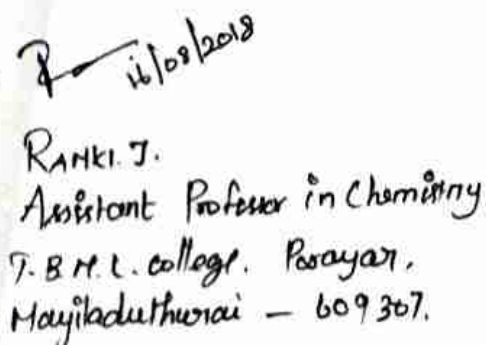 16/08/2018
RANKI. J.
Assistant Professor in Chemistry
T. B. M. L. college. Porayar,
Mayiladuthurai – 609 307.